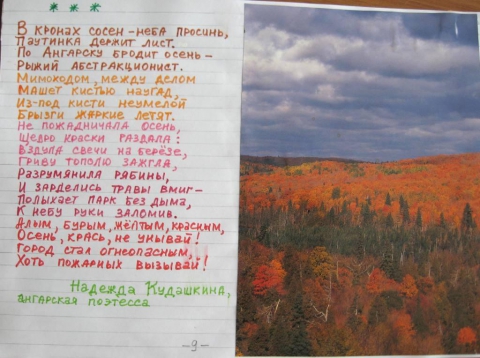 * * *
В кронах сосен – неба просинь,
Паутинка держит лист.
По Ангарску бродит осень –
Рыжий абстракционист.
Мимоходом, между делом
Машет кистью наугад,
Из-под кисти неумелой
Брызги жаркие летят.
Не пожадничала осень,
Щедро краски раздала:
Вздула свечи на берёзе,
Гриву тополю зажгла,
Разрумянила рябины,
И зарделись травы вмиг –
Полыхает парк без дыма,
К небу руки заломив.
Алым, бурым, жёлтым, красным,
Осень, крась, не унывай!
Город стал огнеопасным,
Хоть пожарных вызывай!
Надежда Кудашкина,
ангарская поэтесса
–9–